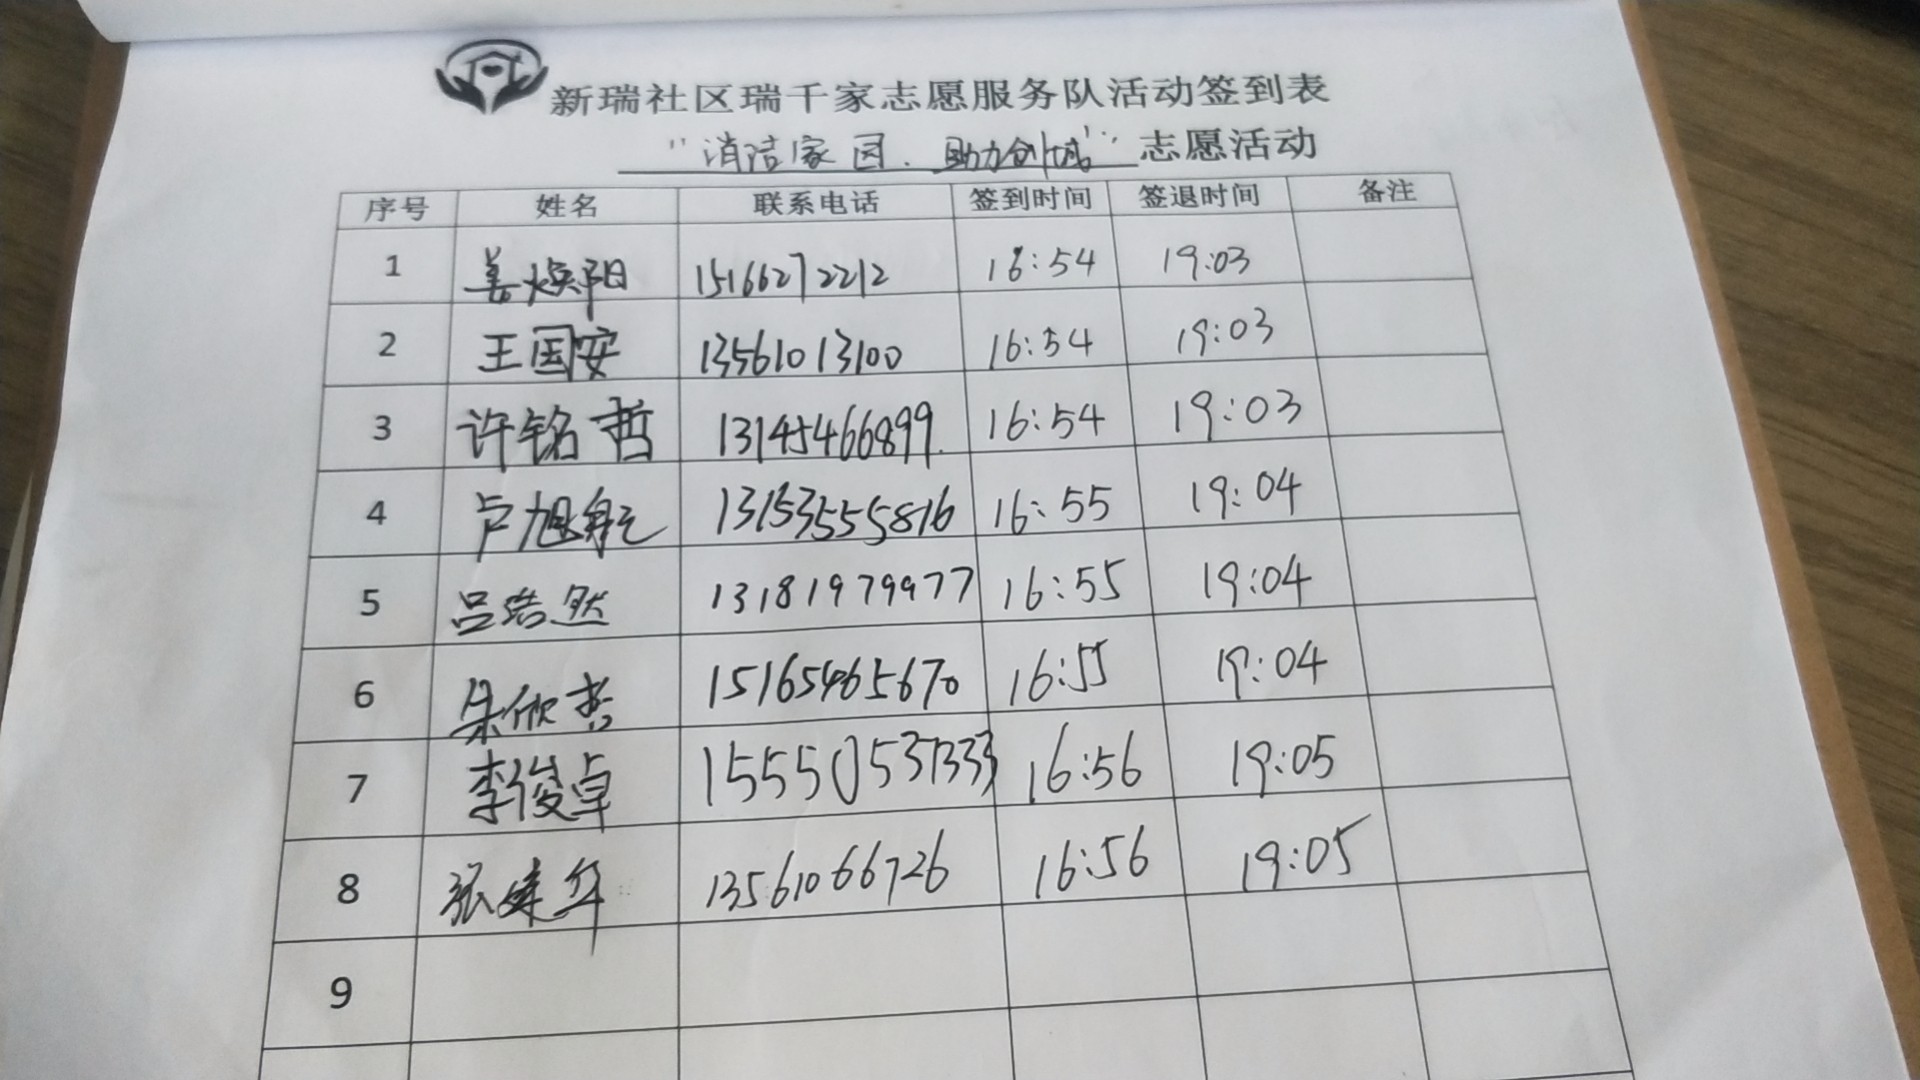 新瑞社区瑞千家志愿服务队活动签到表
"清洁家园.助力创城"志愿活动
序号 姓名 联系电话 签到时间 签退时间 备注
1 姜焕阳 15166272212 16:54 19:03
2 王国安 13561013100 16:54 19:03
3 许铭哲 13145466899. 16:54 19:03
4 卢旭航 13153555816 16:55 19:04
5 吕浩然 13181979977 16:55 19:04
6 朱欣哲 15165465670 16:55 19:04
7 李俊卓 15550531333 16:56 19:05
8 张建华 13561066726 16:56 19:05
9